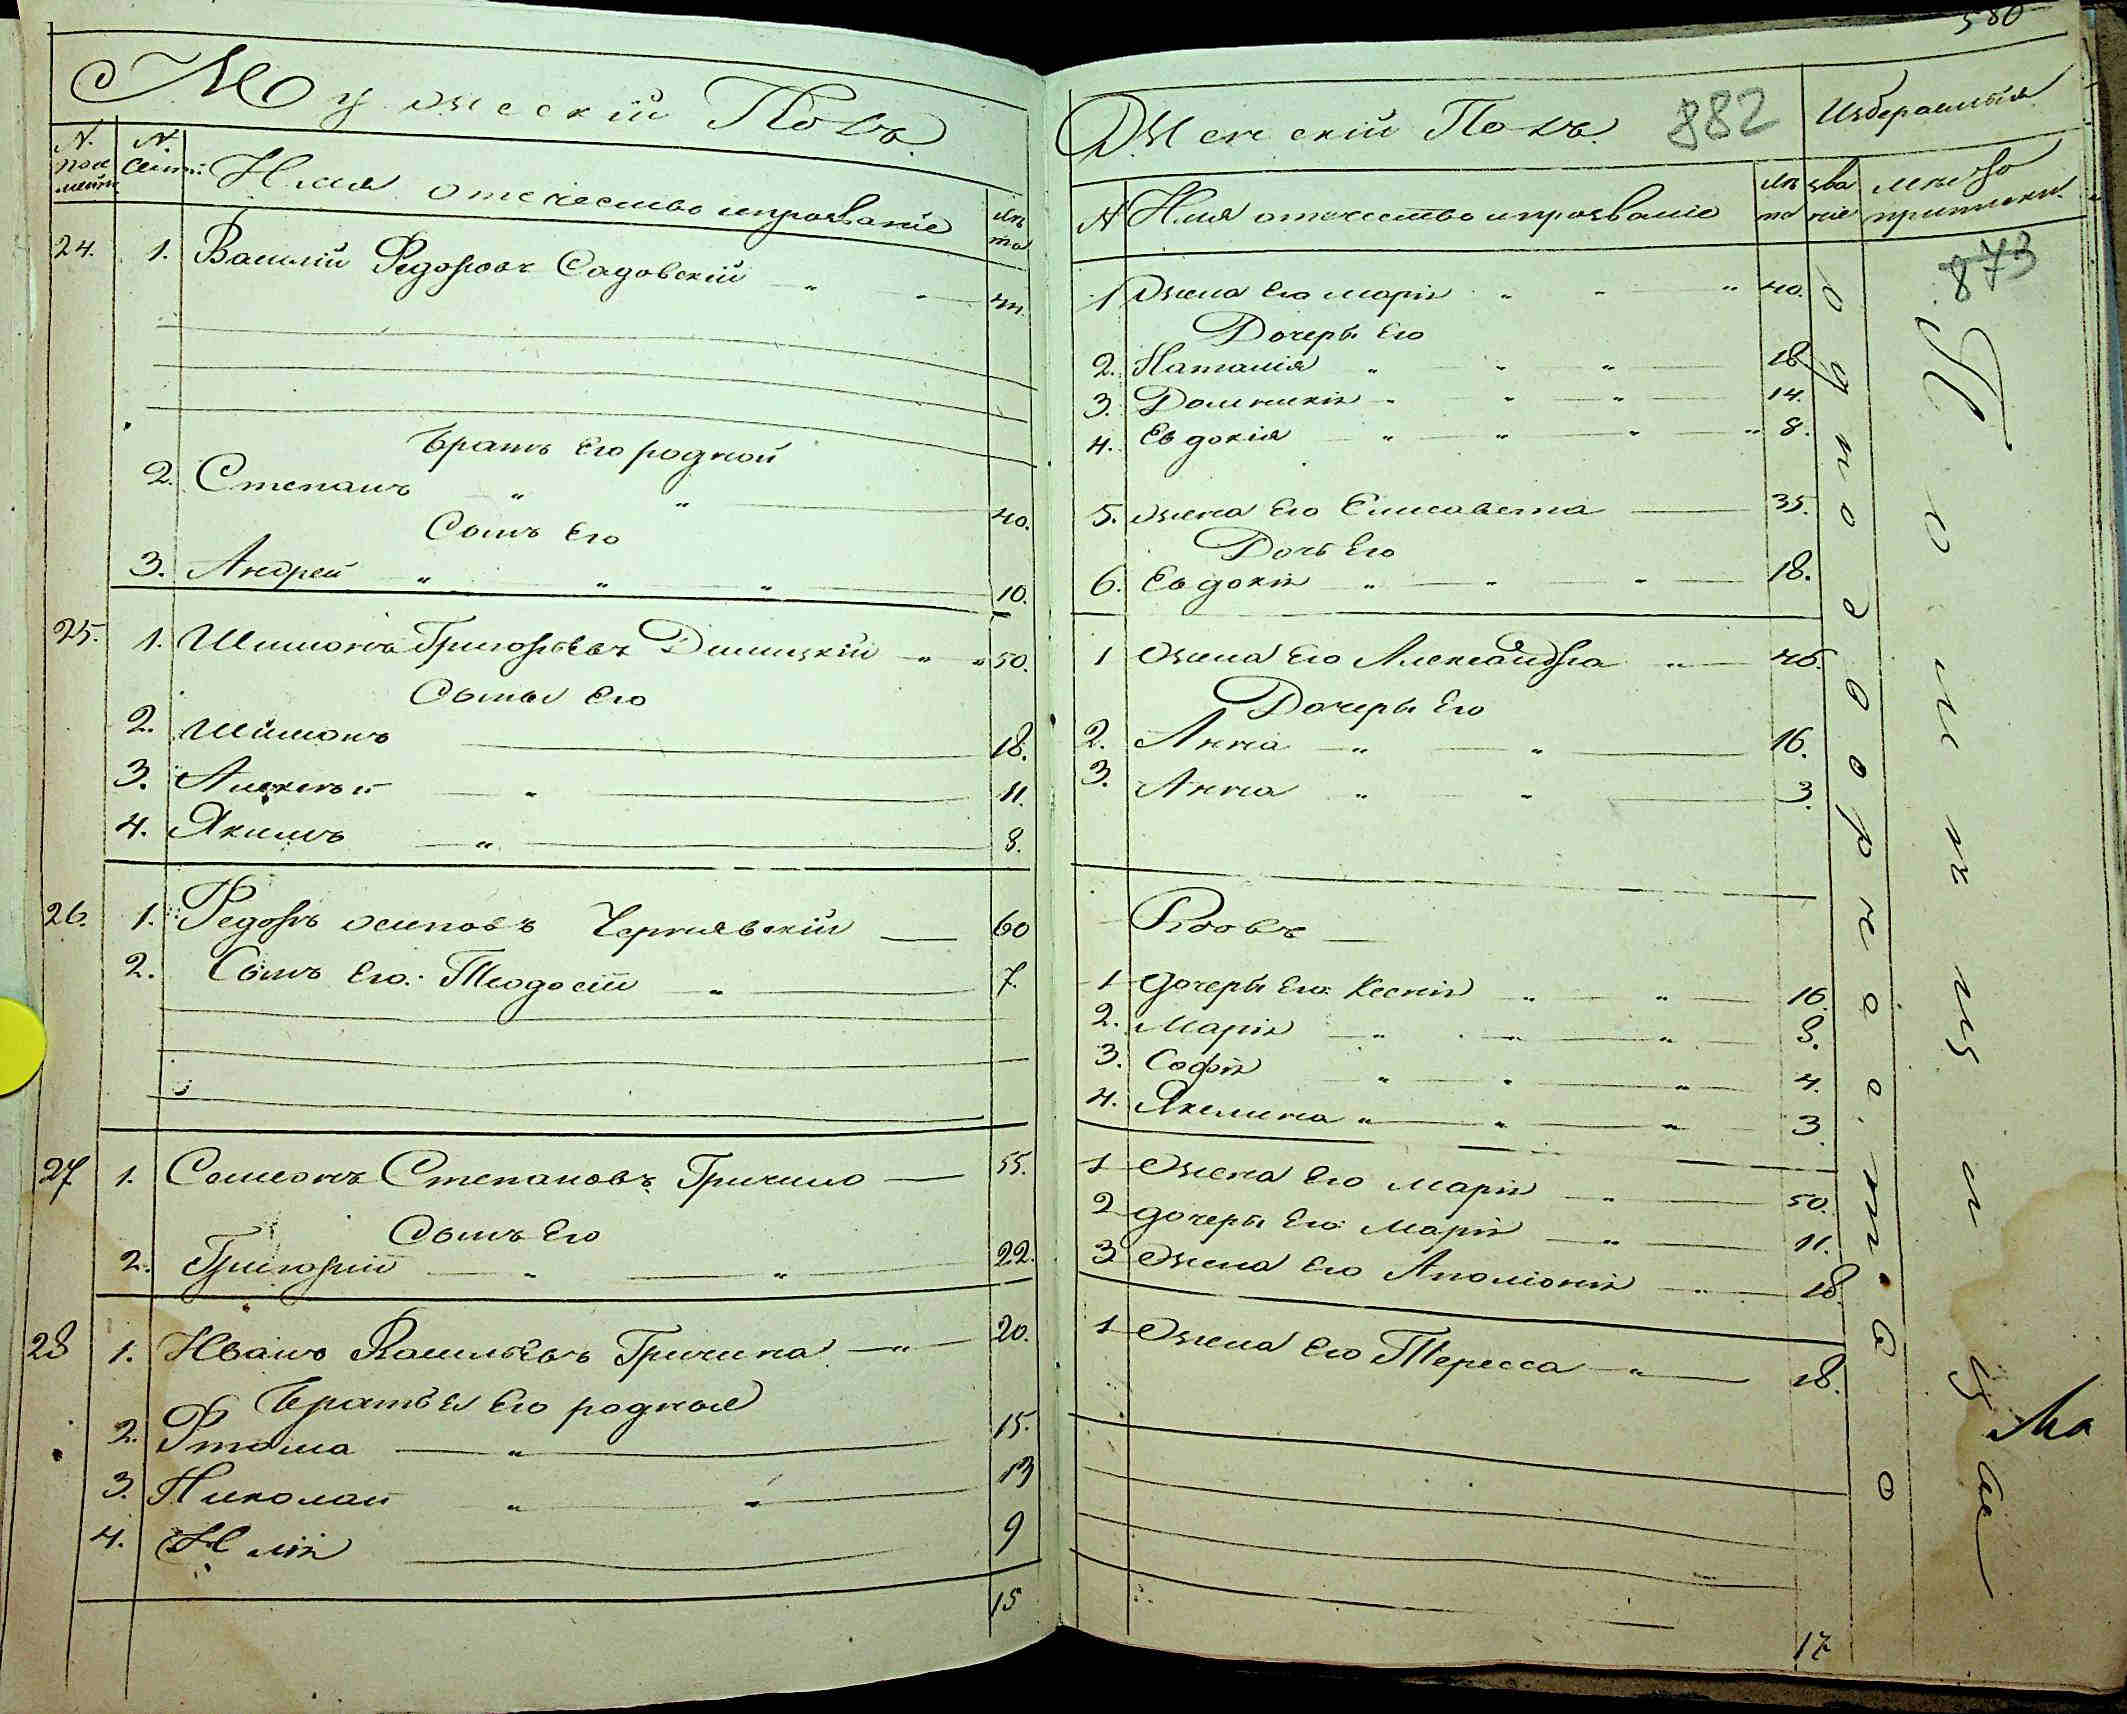 Мужескій Полъ.
N. посе мейст.
N. семей:
Имя отечество ипрозваніе
лѣ та
24. 1. Василій Федоровъ Садовскій
Братъ Его родной
2. Степанъ 40.
Сынъ Его
3. Андрей 10.
25. 1. Шимонъ Григорьевъ 50.
Сыны Его
2. Шимонъ 18.
3. Алексѣй 11.
4. Якимъ 8.
26. 1. Федоръ осиповъ Чернявскій 60
2. Сынъ Его: Теодосій 7.
27 1. Семенъ Степановъ Гричило 55.
Сынъ Его
2. Григорій 22.
28 1. Иванъ Васильевъ Гричина 20.
Братья Его родныя
2. Фтома 15.
3. Николай 13
4. Илія 9
15
580
Женскій Полъ. 882
Избераемыя
N Имя отечество ипрозваніе
лѣ та
зва ніе
мѣсто приписки.
873
1 Жена Его марія 40.
Дочеры Его
2. Наталія 18
3. Доминикія 14.
4. Евдокія 8.
5. жена Его Елисавета 35.
Дочь Его
6. Евдокія 18.
1 Жена Его Александра 46.
Дочеры Его
2. Анна 16.
3. Анна 3.
Вдовъ
1 дочеры Его: Ксенія 16
2. Марія 8.
3. Софія 4.
4. Якилина 3.
1 Жена Его марія 50.
2 дочеры Его: Марія 11.
3 Жена Его Аполіонія 18.
1 Жена Его Тересса 18.
17
Однодворческое
Ма